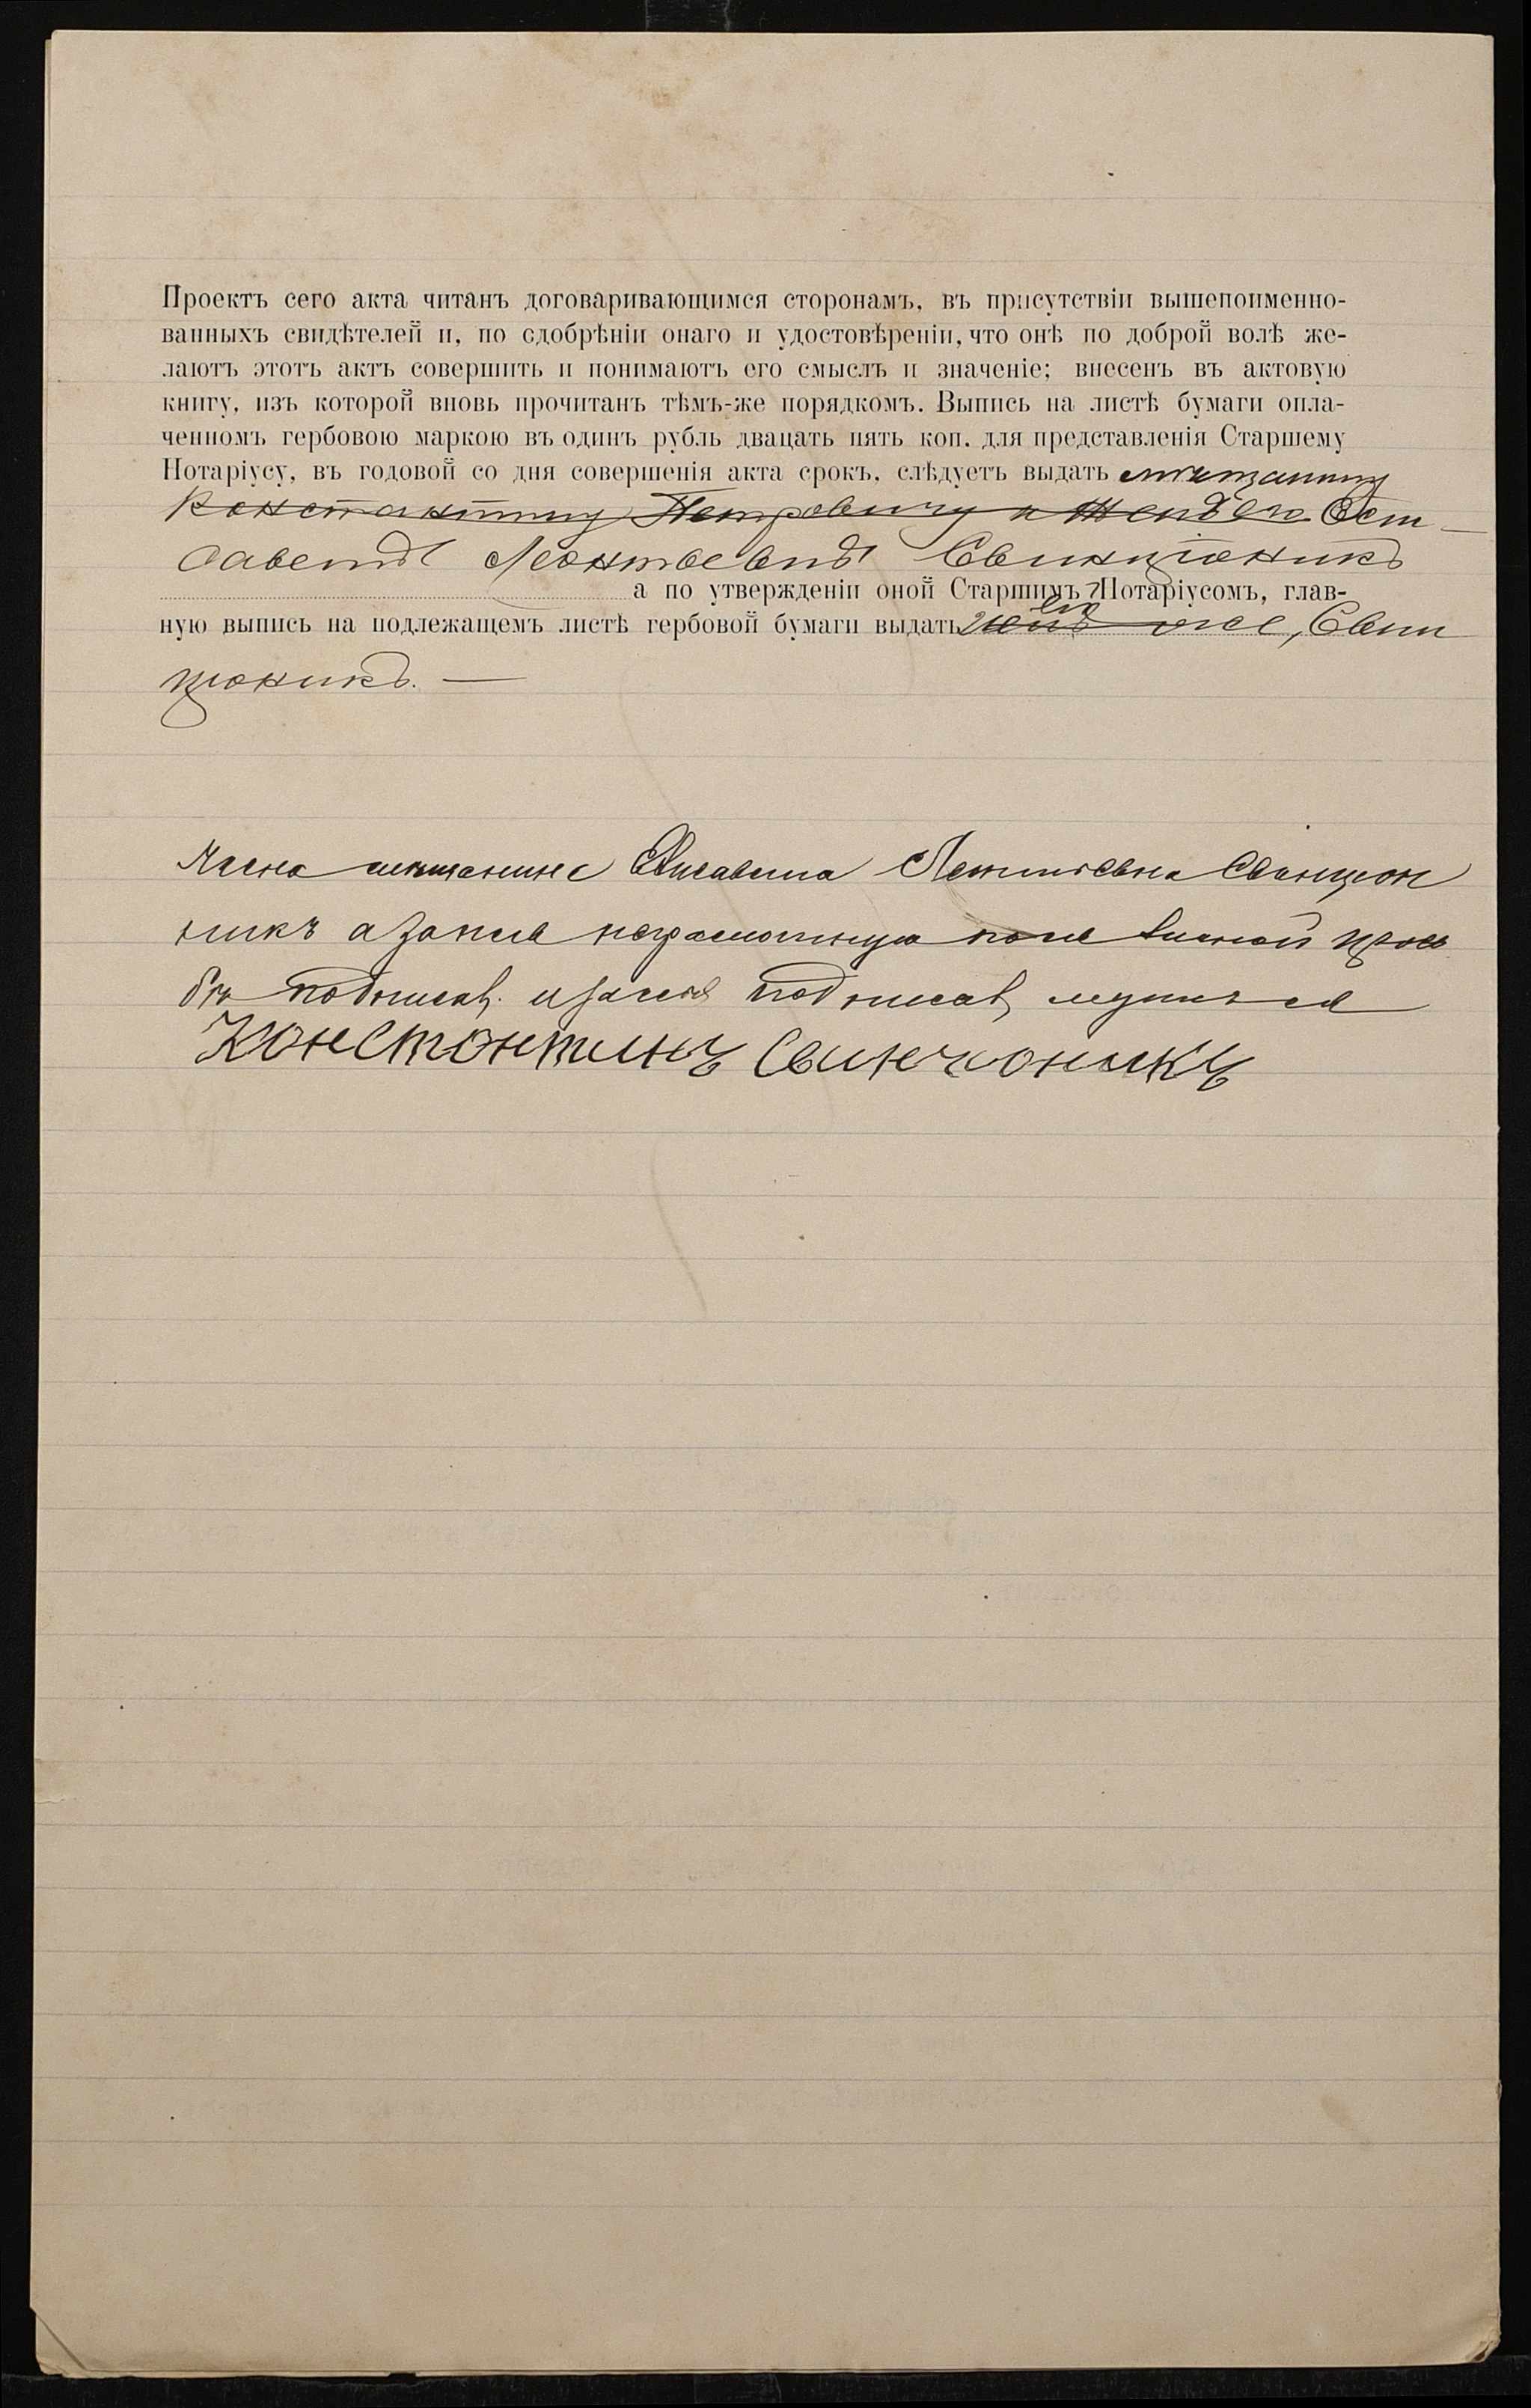 Проектъ сего акта читанъ договаривающимся сторонамъ, въ присутствіи вышепоименно-
ванныхъ свидѣтелей и, по сдобрѣніи онаго и удостовѣреніи, что онѣ по доброй волѣ же-
лаютъ этотъ актъ совершить и понимаютъ его смыслъ и значеніе; внесенъ въ актовую
книгу, изъ которой вновь прочитанъ тѣмъ-же порядкомъ. Выпись на листѣ бумаги опла-
ченномъ гербовою маркою въ одинъ рубль двацать пять коп. для представленія Старшему
Нотаріусу, въ годовой со дня совершенія акта срокъ, слѣдуетъ выдать
Константину Петровичу и женѣ его
саветѣ Леонтьевнѣ Свинцюникъ
а по утвержденіи оной Старшимъ Нотаріусомъ, глав-
ную выпись на подлежащемъ листѣ гербовой бумаги выдать ей же, Свин
цюникъ. —
Елисавета Свинцюн
никъ а за нея неграмотную по ея личной прось
бѣ подписав. и за себя подписав мужъ ея
Константинъ Свинчоникъ